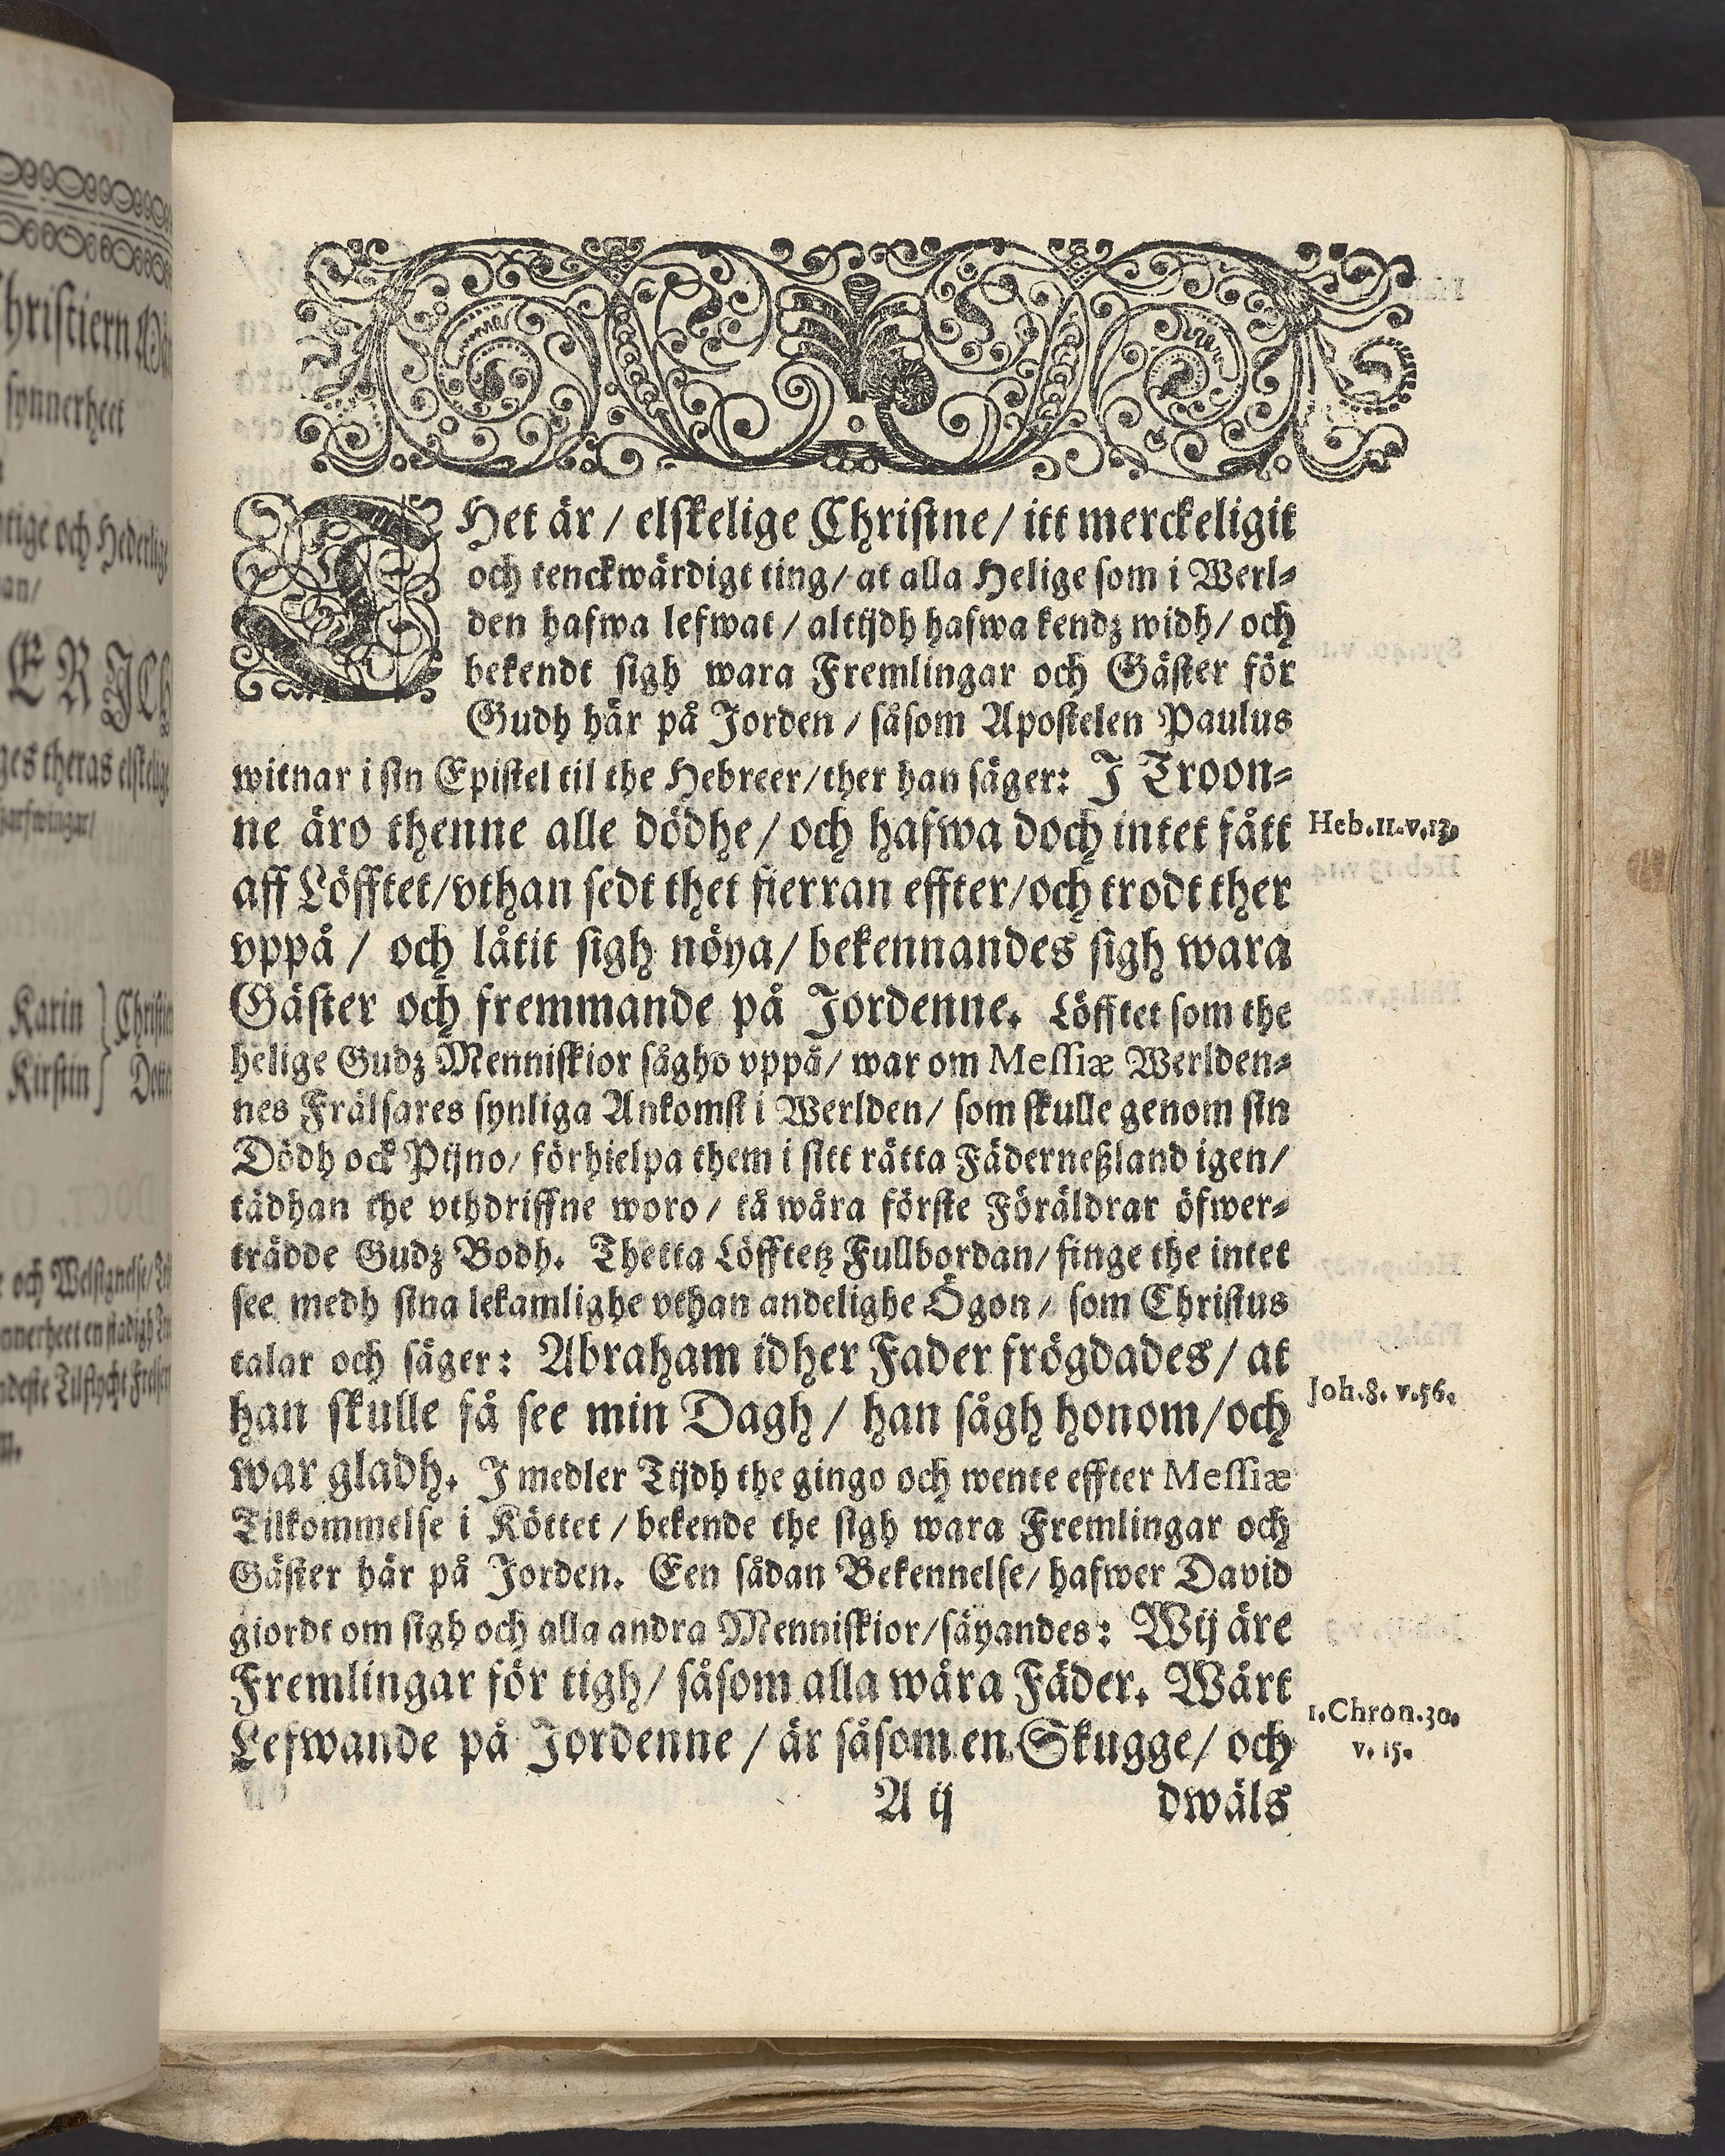 THet är / elskelige Christne / itt merckeligit
och tenckwärdigt ting / at alla Helige som i Werl-
den hafwa lefwat / altijdh hafwa kendz widh / och
bekendt sigh wara Fremlingar och Gäster för
Gudh här på Jorden / såsom Apostelen Paulus
witnar i sin Epistel til the Hebreer / ther han säger: J Troon-
ne äro thenne alle dödhe / och hafwa doch intet fått
Heb.11.v.13.
aff Löfftet / vthan sedt thet fierran effter / och trodt ther
vppå / och låtit sigh nöya / bekennandes sigh wara
Gäster och fremmande på Jordenne. Löfftet som the
helige Gudz Menniskior sågho vppå / war om Messiæ Werlden-
nes Frälsares synliga Ankomst i Werlden / som skulle genom sin
Dödh ock Pijno / förhielpa them i sitt rätta Fäderneßland igen /
tädhan the vthdriffne woro / tå wåra förste Föräldrar öfwer-
trädde Gudz Bodh. Thetta Löfftetz Fullbordan / finge the intet
see medh sina lekamlighe vthan andelighe Ögon / som Christus
talar och säger: Abraham idher Fader frögdades / at
han skulle få see min Dagh / han sågh honom / och
Joh.8. v.56.
war gladh. J medler Tijdh the gingo och wente effter Messiæ
Tilkommelse i Köttet / bekende the sigh wara Fremlingar och
Gäster här på Jorden. Een sådan Bekennelse / hafwer David
giordt om sigh och alla andra Menniskior / säyandes: Wij äre
Fremlingar för tigh / såsom alla wåra Fäder. Wårt
Lefwande på Jordenne / är såsom en Skugge / och
1.Chron.30.
v. 15.
A ij
dwäls
Christiern
synnerheet
och Hederlig
ERICH
theras elskelige
Karin
Kirstin
och Welsignelse /